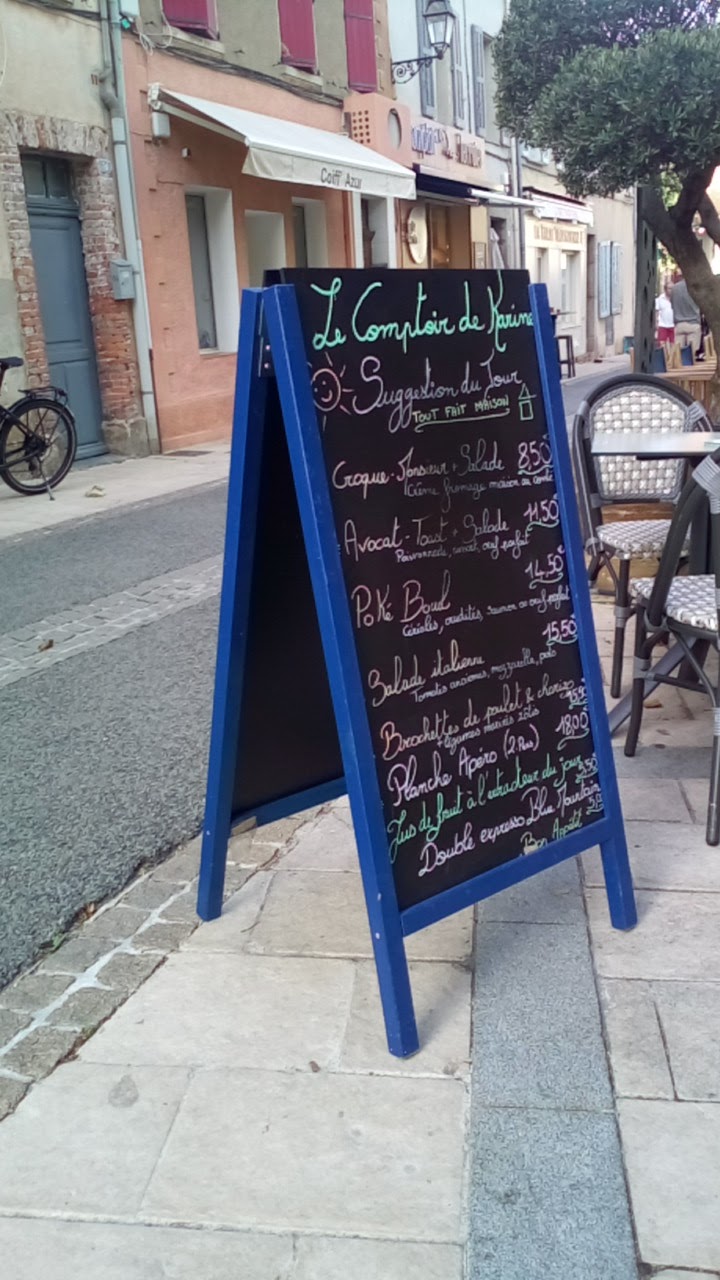 Coiff Azur
Le Comptoir de Karine
Suggestion du Jour
TOUT FAIT MAISON
Croque-Monsieur + Salade 8,50€
Crème fromage maison au comté
Avocat-Toast + Salade 11,50€
oeuf parfait
Poké Bowl 14,50€
Céréales, crudités, saumon ou oeuf parfait
Salade italienne 15,50€
Tomates anciennes, mozzarella, pesto
Brochettes de poulet & chorizo
+ légumes marinés rôtis
Planche Apéro (2 Pers) 18,00€
Jus de fruit à l'extracteur du jour
Double expresso Blue Mountain
Bon Appétit